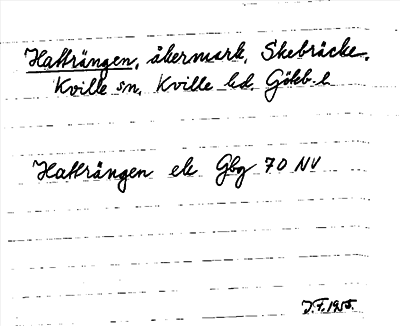 Hatträngen, åkermark, Skebräcke.
Kville sn, Kville hd. Göteb. l
Hatträngen ek Gbg 70 NV
J.F. 1955.